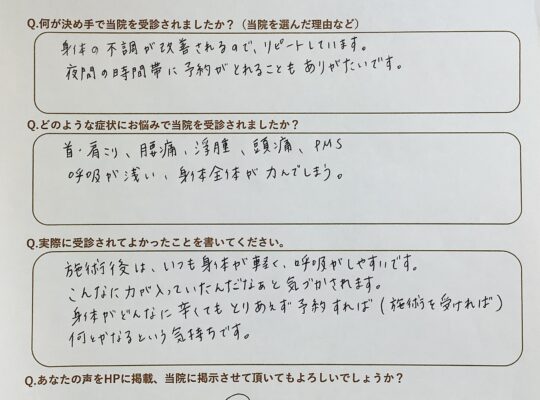 Q.何が決め手で当院を受診されましたか？（当院を選んだ理由など）
身体の不調が改善されるので、リピートしています。
夜間の時間帯に予約がとれることもありがたいです。
Q.どのような症状にお悩みで当院を受診されましたか？
首・肩こり、腰痛、浮腫、頭痛、PMS
呼吸が浅い、身体全体が力んでしまう。
Q.実際に受診されてよかったことを書いてください。
施術後は、いつも身体が軽く、呼吸がしやすいです。
こんなに力が入っていたんだなぁと気づかされます。
身体がどんなに辛くてもとりあえず予約すれば(施術を受ければ)
何とかなるという気持ちです。
Q.あなたの声をHPに掲載、当院に掲示させて頂いてもよろしいでしょうか？